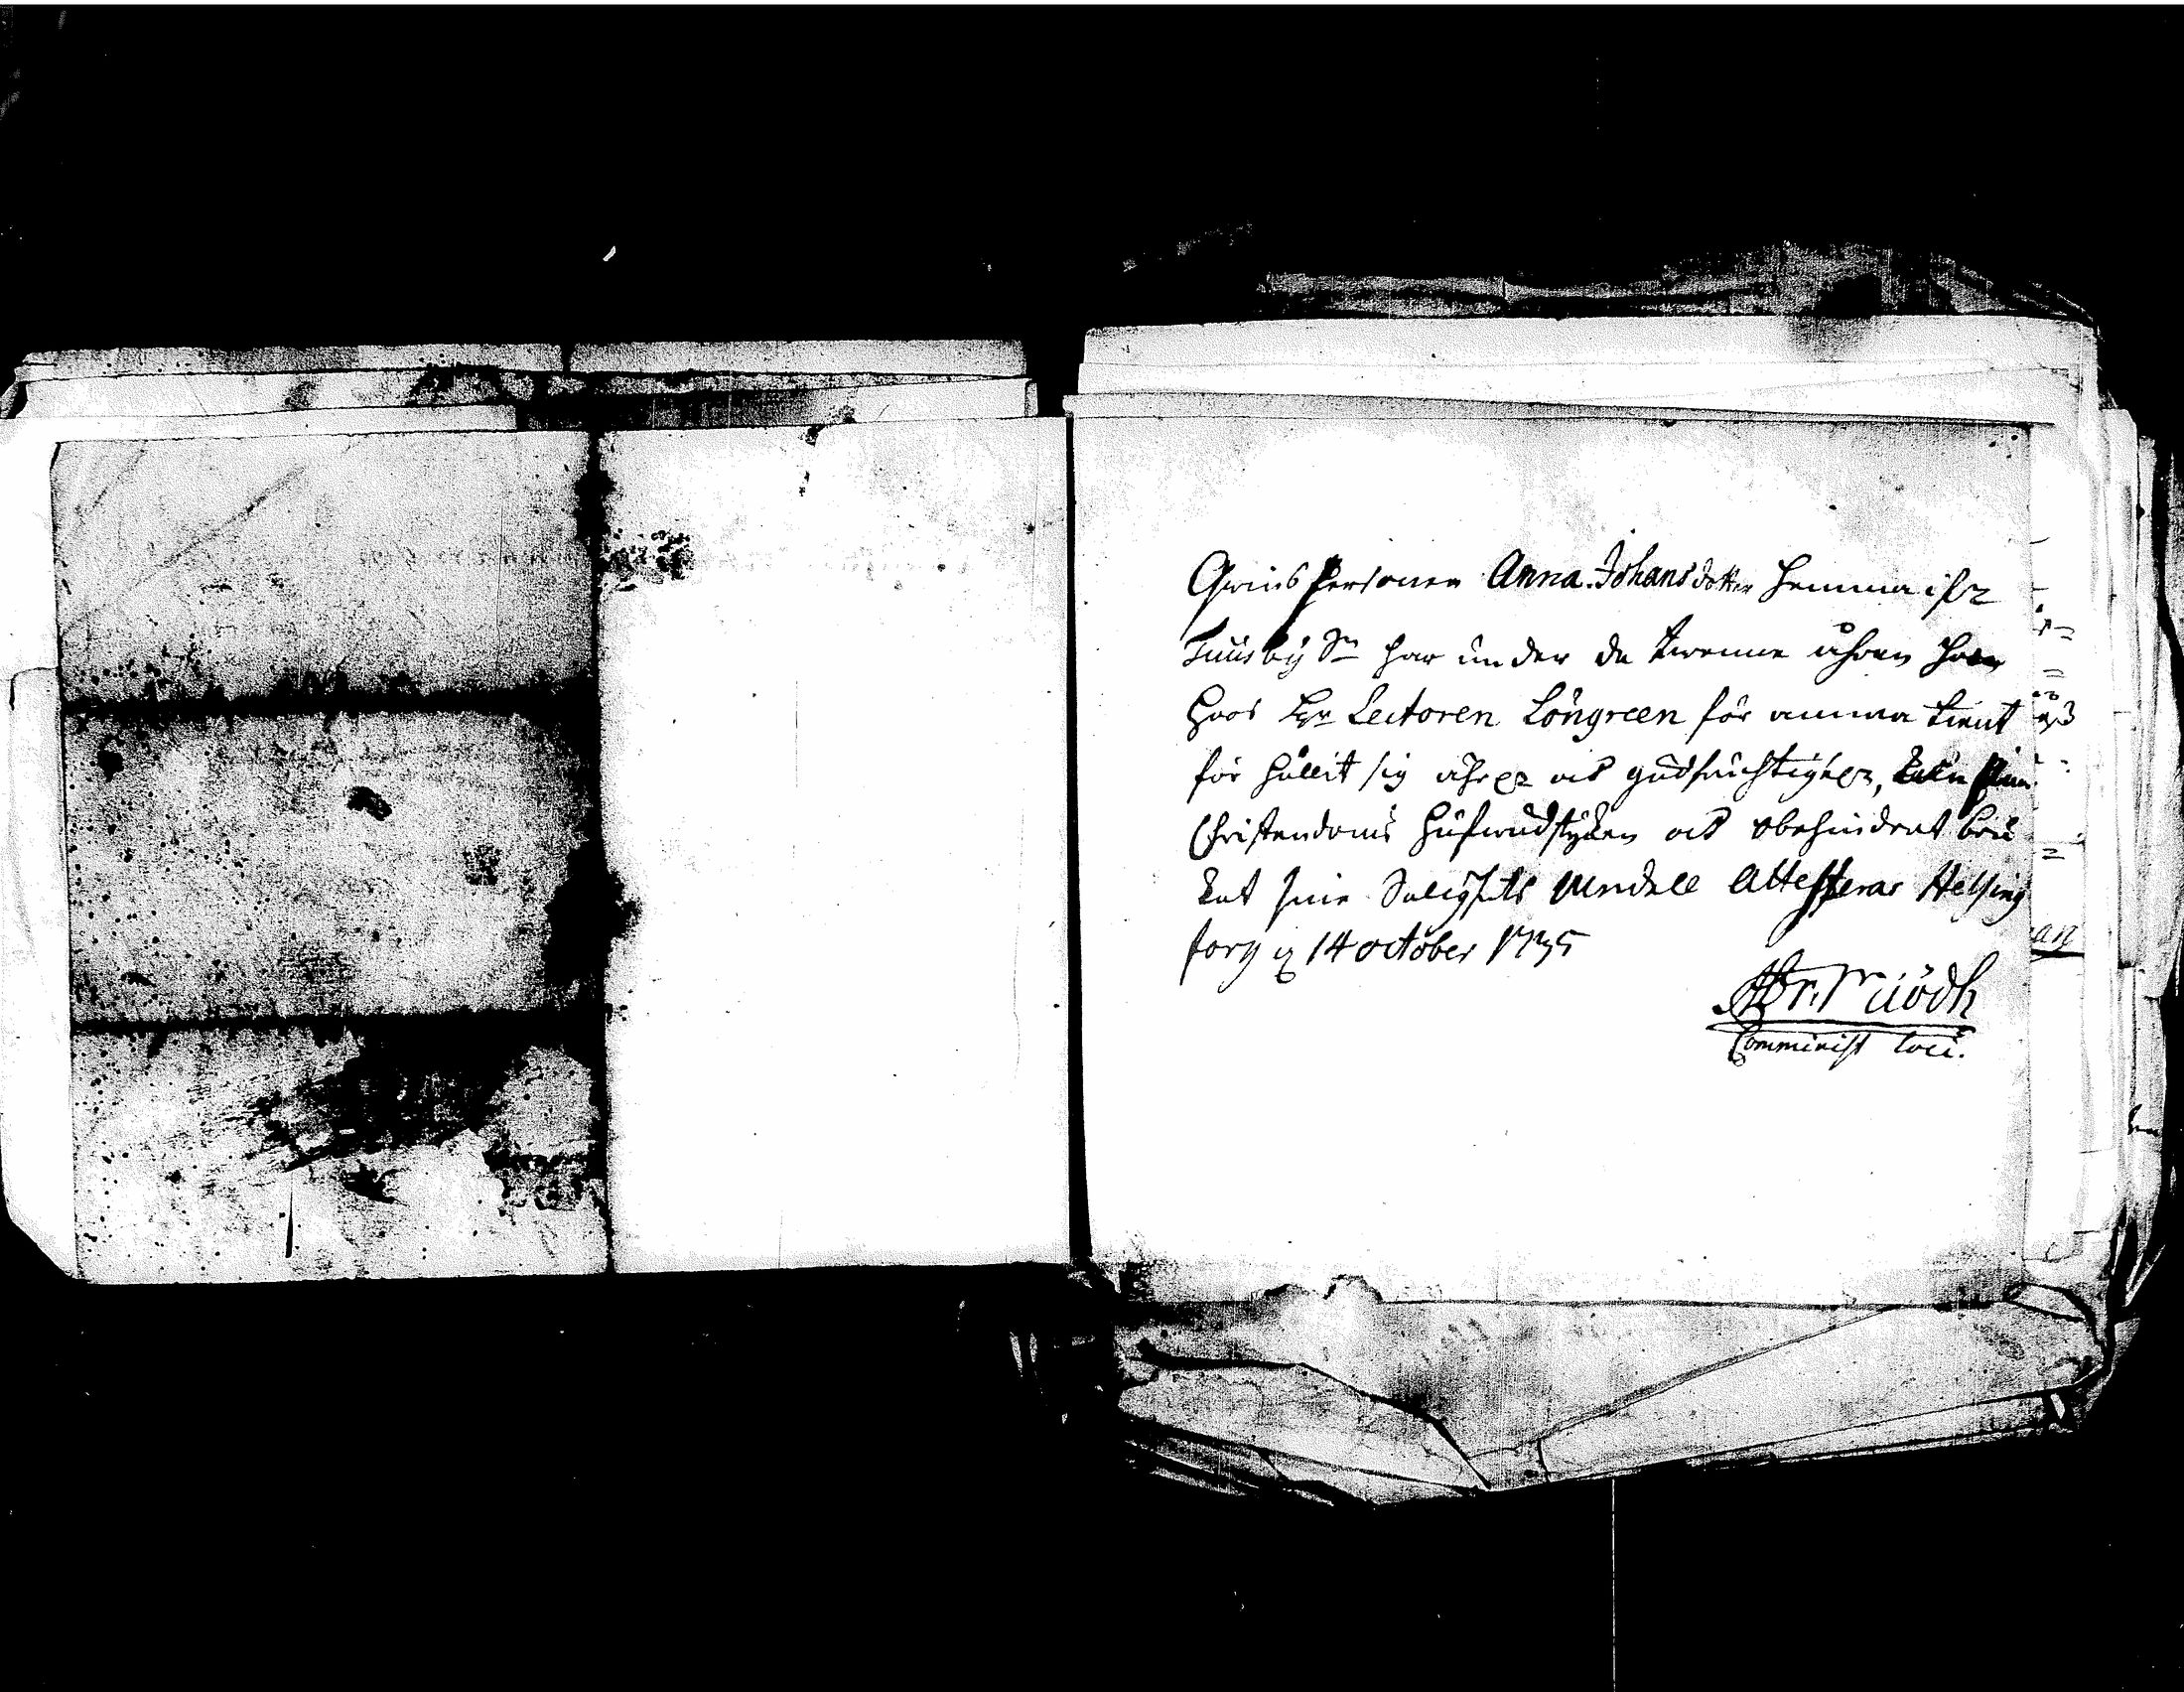 Qwins Personen Anna Johansdotter hemma ifr
Tuusby Sn har under de twenne åhren hon
hoos Hr Lectoren Löngreen för amma tient
för hållit sig ährl och gudfruchtigt, kan sine
Christendoms hufwudstycken och obehindrat bru
kat sine Salighets Medell Attesteras Helsing
fors d 14 october 1735
Abr. Miödh
Comminist loci.